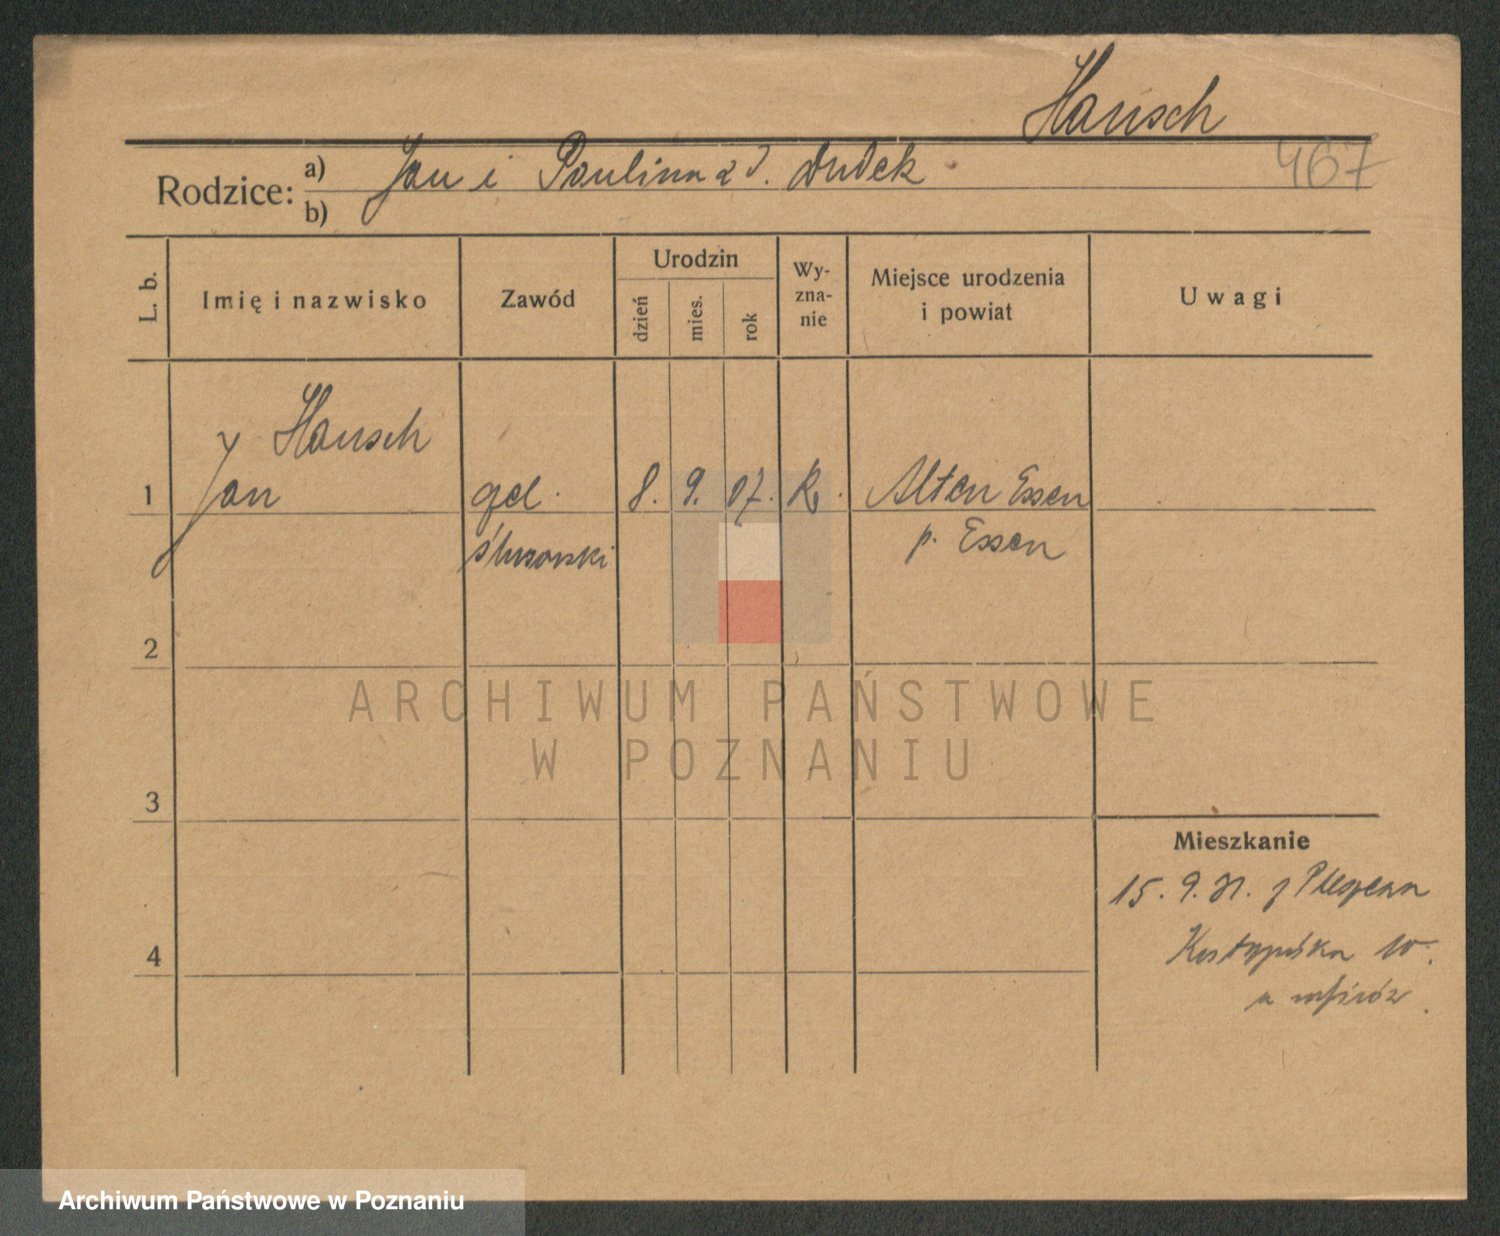 Hausch
467
Rodzice: a) Jan i Paulina z d. Dudek
b)
L. b.
Imię i nazwisko
Zawód
Urodzin
dzień
mies.
rok
Wy-
zna-
nie
Miejsce urodzenia
i powiat
Uwagi
Hausch
1 Jan czel. 8. 9. 07. R. Alten Essen
ślusarski p. Essen
2
3
4
Mieszkanie
15. 9. 31. z
10.
ARCHIWUM PAŃSTWOWE
W POZNANIU
Archiwum Państwowe w Poznaniu